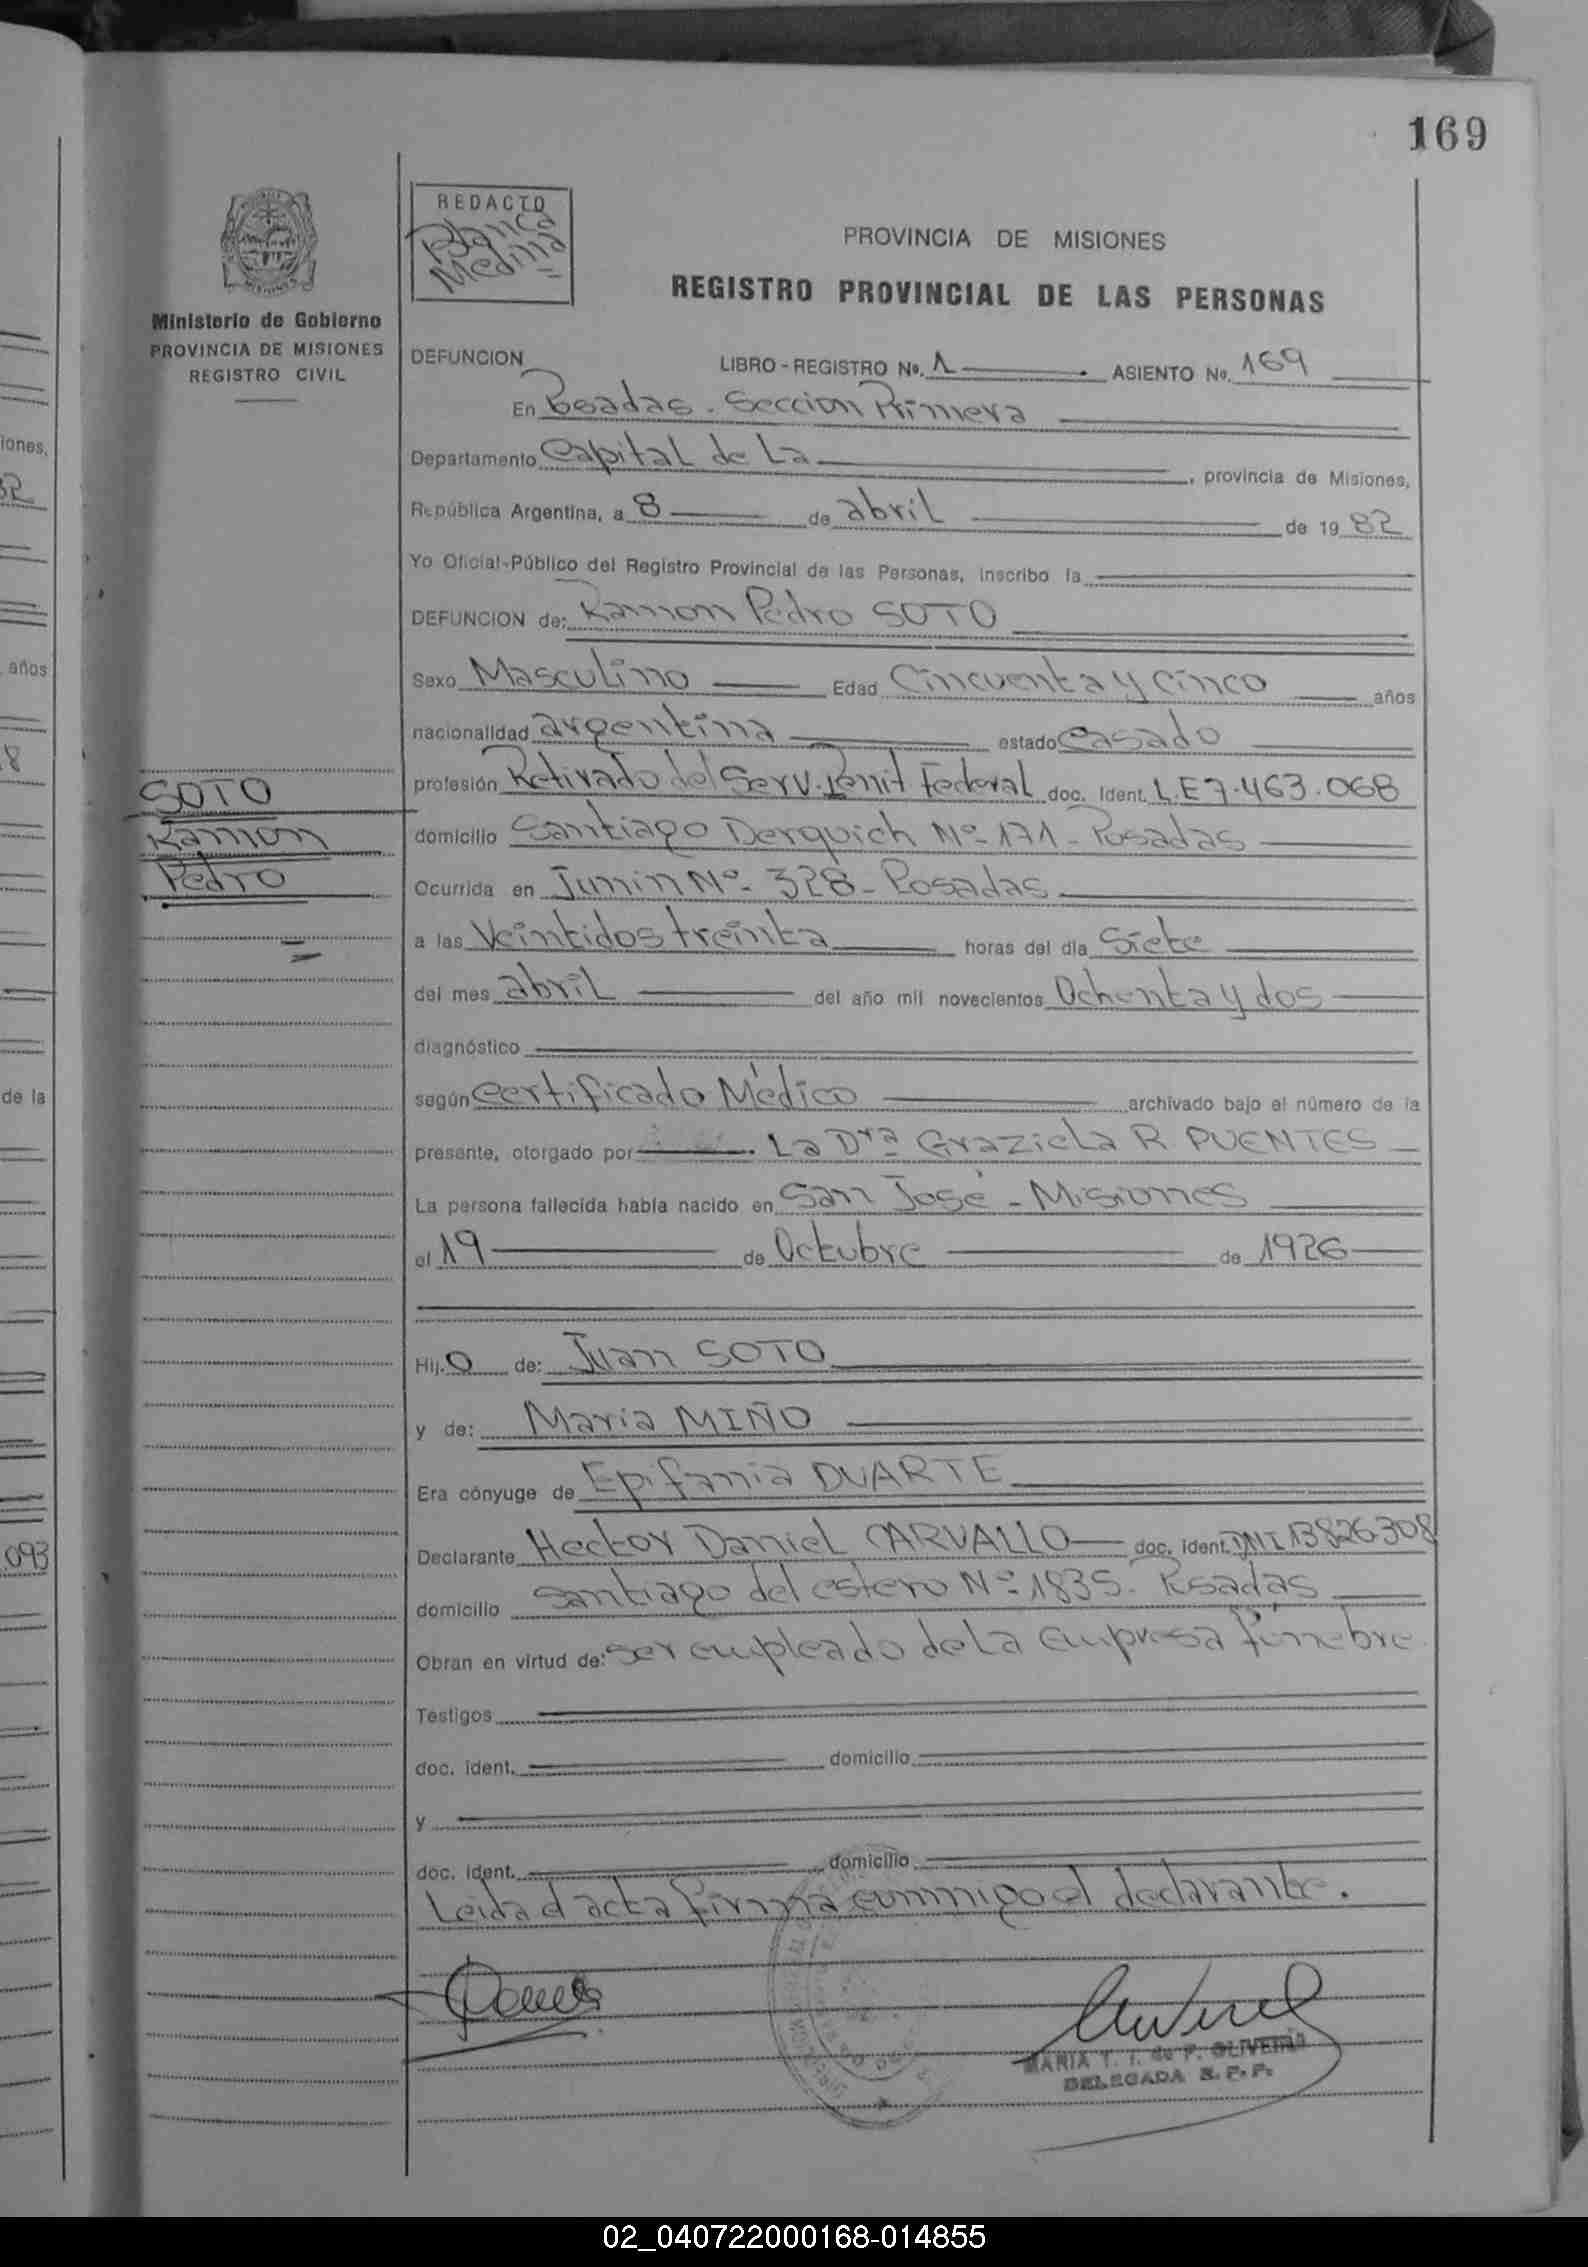 169
REDACTO
Blanca
Medina
PROVINCIA DE MISIONES
REGISTRO PROVINCIAL DE LAS PERSONAS
Ministerio de Gobierno
PROVINCIA DE MISIONES
REGISTRO CIVIL
DEFUNCION LIBRO - REGISTRO Nº. 1 ASIENTO Nº. 169
En Posadas - Sección Primera
Departamento Capital de La, provincia de Misiones,
República Argentina, a 8 de abril de 19 82
Yo Oficial-Público del Registro Provincial de las Personas, inscribo la
DEFUNCION de: Ramon Pedro SOTO
Sexo Masculino Edad Cincuenta y cinco años
nacionalidad argentina estado Casado
profesión Retirado del Serv. Penit Federal doc. Ident. L.E 7.463.068
SOTO
Ramon
Pedro
domicilio Santiago Derquich Nº 171 - Posadas
Ocurrida en Junin Nº 328 - Posadas
a las Veintidos treinta horas del día Siete
del mes abril del año mil novecientos Ochenta y dos
diagnóstico
según Certificado Médico archivado bajo el número de la
presente, otorgado por La Dra Graziela R PUENTES
La persona fallecida había nacido en San José - Misiones
el 19 de Octubre de 1926
Hij.o de: Juan SOTO
y de: Maria MIÑO
Era cónyuge de Epifania DUARTE
Declarante Hector Daniel CARVALLO doc. ident. DNI 13826308
domicilio Santiago del estero Nº 1835. Posadas
Obran en virtud de: Ser empleado de La empresa fúnebre
Testigos
doc. ident. domicilio
y
doc. ident. domicilio
Leida el acta firma conmigo el declarante.
MARIA T. I. de P. OLIVEIRA
DELEGADA R. P. P.
iones,
82
años
8
de la
093
02_040722000168-014855